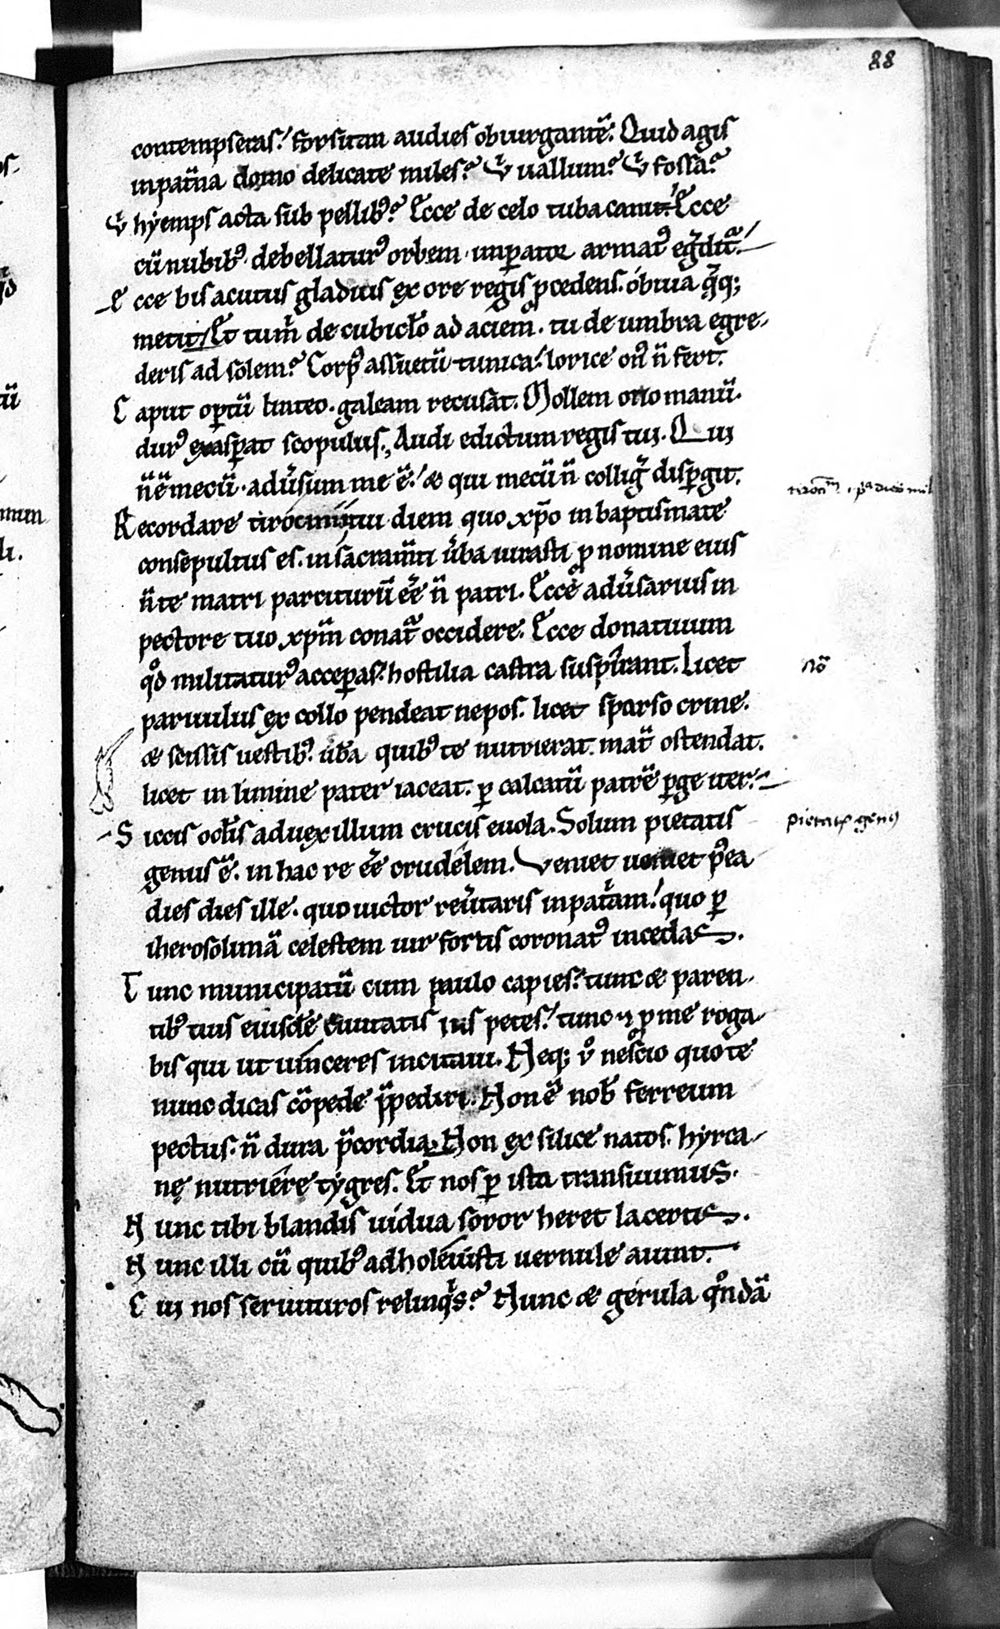 88
contempseras? forsitan audies obiurgantē. Quid agis
inpat̄na domo delicate miles? Vͥ uallum? Vͥ fossa?
Vͥ hyemps acta sub pellibꝰ? Ecce de celo tuba canit. Ecce
cū nubibꝰ debellaturꝰ orbem imꝑator armatꝰ eg̃dit᷑.
Ecce bis acutus gladius ex ore regis ꝓcedens. obuia q̄q;
metit. Et tu m̄ de cubicl̄o ad aciem. tu de umbra egre-
deris ad solem? Corpꝰ assuetū tunica. lorice onꝰ n̄ fert.
Caput oꝑtū linteo. galeam recusat. Mollem otio manū.
durꝰ exasꝑat scopulus. Audi edictum regis tui. Qui
n̄ ē mecū. adu͛sum me ē. & qui mecū n̄ collig̃ disꝑgit.
Recordare tirocinii tui diem quo xp̄o in baptismate
consepultus es. in sacram̄ti u͛ba iurasti ꝓ nomine eius
n̄ te matri parciturū eē n̄ patri. Ecce adu͛sarius in
pectore tuo xp̄m conat᷑ occidere. Ecce donatiuum
qd̄ militaturꝰ acceꝑas. hostilia castra suspirant. Licet
paruulus ex collo pendeat nepos. licet sparso crine.
& scissis uestibꝰ. ub̄a quibꝰ te nutrierat mat͛ ostendat.
licet in limine pater iaceat. ꝑ calcatū patrē ꝑge iter.
Siccis ocl̄is ad uexillum crucis euola. Solum pietatis
genus ē. in hac re eē crudelem. Veniet ueniet p̄ea
dies dies ille. quo uictor reu͛taris in pat͛am. quo ꝑ
iherosolimā celestem uir fortis coronatꝰ incedas.
Tunc municipatū cum paulo capies. tunc & paren-
tibꝰ tuis eiusdē ciuitatis ius petes. tunc & ꝓ me roga-
bis qui ut uinceres incitaui. Neq; v̊ nescio quo te
nunc dicas cōpede p̄pediri. Non ē nob̄ ferreum
pectus. n̄ dura p̄cordia. Non ex silice natos. hyrca-
nę nutriere tygres. Et nos ꝑ ista transiuimus.
Nunc tibi blandis uidua soror heret lacertis.
Nunc illi cū quibꝰ adholeuisti uernule aiunt.
Cui nos seruituros relinq͛s? Nunc & gerula qͦndā
nō
pietatꝭ genꝰ